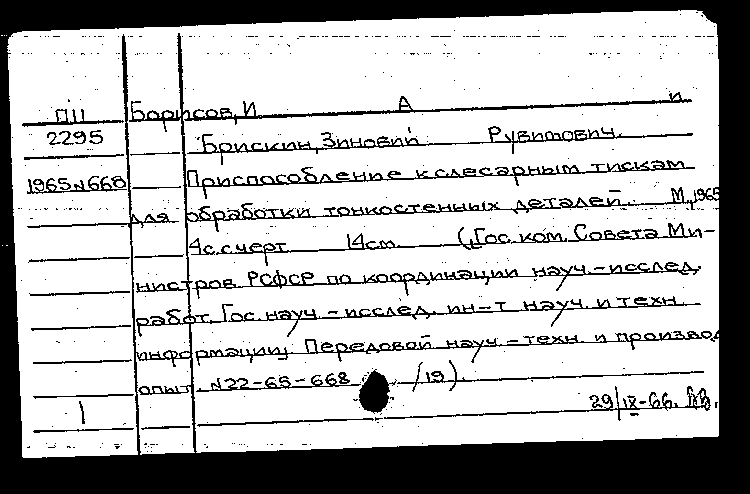 ПII Борисов, И А и
2295 Брискин, Зиновий Рувимович.
1965 N668 Приспособление к слесарным тискам
для обработки тонкостенных деталей. М., 1965
4с. с черт. 14см. (Гос. ком. Совета Ми-
нистров РСФСР по координации науч.-исслед.
работ. Гос. науч.-исслед. ин-т науч. и техн.
информации. Передовой науч.-техн. и производ.
опыт. N22-65-668 /19).
1 29/IX-66.